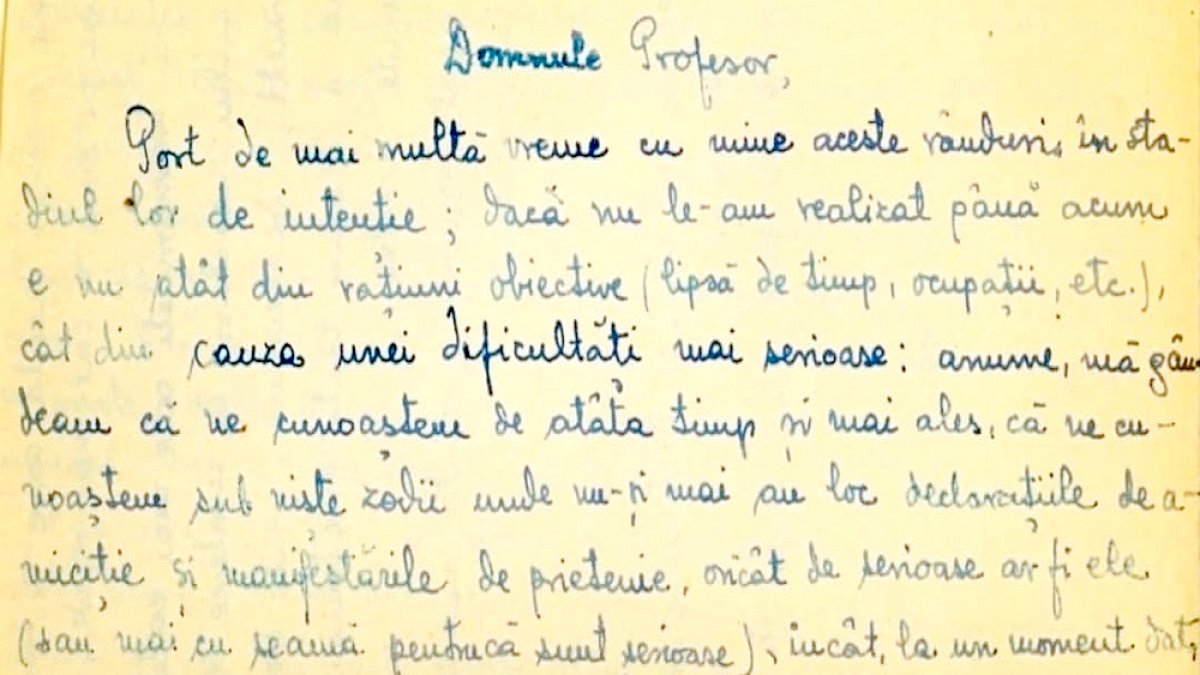 Domnule Profesor,
Port de mai multă vreme cu mine aceste rânduri, în sta-
diul lor de intenție; dacă nu le-am realizat până acum
e nu atât din rațiuni obiective (lipsă de timp, ocupații, etc.),
cât din cauza unei dificultăți mai serioase: anume, mă gân-
deam că ne cunoaștem de atâta timp și mai ales, că ne cu-
noaștem sub niște zodii unde nu-și mai au loc declarațiile de a-
miciție și manifestările de prietenie, oricât de serioase ar fi ele
(sau mai cu seamă pentrucă sunt serioase), încât, la un moment dat,